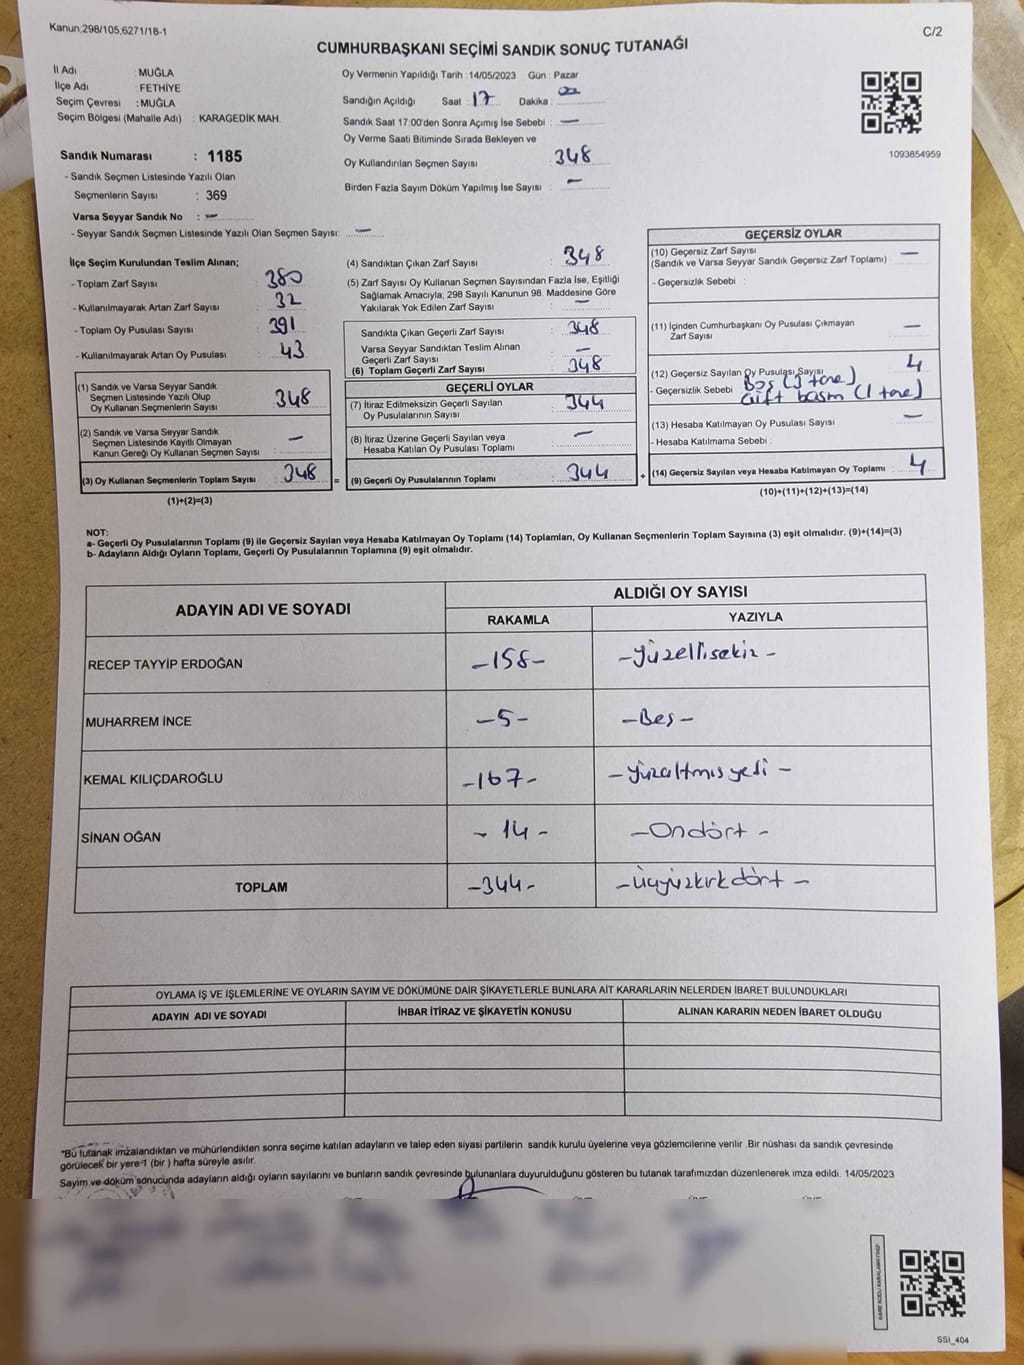 Kanun;298/105,6271/18-1
C/2
CUMHURBAŞKANI SEÇİMİ SANDIK SONUÇ TUTANAĞI
İl Adı : MUĞLA
İlçe Adı : FETHİYE
Seçim Çevresi : MUĞLA
Seçim Bölgesi (Mahalle Adı) : KARAGEDİK MAH.
Sandık Numarası : 1185
- Sandık Seçmen Listesinde Yazılı Olan
Seçmenlerin Sayısı : 369
Varsa Seyyar Sandık No : -
- Seyyar Sandık Seçmen Listesinde Yazılı Olan Seçmen Sayısı: -
Oy Vermenin Yapıldığı Tarih : 14/05/2023 Gün : Pazar
Sandığın Açıldığı Saat : 17 Dakika : 00
Sandık Saat 17:00'den Sonra Açımış İse Sebebi : -
Oy Verme Saati Bitiminde Sırada Bekleyen ve
Oy Kullandırılan Seçmen Sayısı : 348
Birden Fazla Sayım Döküm Yapılmış İse Sayısı : -
1093854959
İlçe Seçim Kurulundan Teslim Alınan;
- Toplam Zarf Sayısı : 380
- Kullanılmayarak Artan Zarf Sayısı : 32
- Toplam Oy Pusulası Sayısı : 391
- Kullanılmayarak Artan Oy Pusulası : 43
(1) Sandık ve Varsa Seyyar Sandık
Seçmen Listesinde Yazılı Olup
Oy Kullanan Seçmenlerin Sayısı : 348
(2) Sandık ve Varsa Seyyar Sandık
Seçmen Listesinde Kayıtlı Olmayan
Kanun Gereği Oy Kullanan Seçmen Sayısı : -
(3) Oy Kullanan Seçmenlerin Toplam Sayısı : 348
(1)+(2)=(3)
=
(4) Sandıktan Çıkan Zarf Sayısı : 348
(5) Zarf Sayısı Oy Kullanan Seçmen Sayısından Fazla İse, Eşitliği
Sağlamak Amacıyla; 298 Sayılı Kanunun 98. Maddesine Göre
Yakılarak Yok Edilen Zarf Sayısı : -
Sandıkta Çıkan Geçerli Zarf Sayısı : 348
Varsa Seyyar Sandıktan Teslim Alınan
Geçerli Zarf Sayısı : -
(6) Toplam Geçerli Zarf Sayısı : 348
GEÇERLİ OYLAR
(7) İtiraz Edilmeksizin Geçerli Sayılan
Oy Pusulalarının Sayısı : 344
(8) İtiraz Üzerine Geçerli Sayılan veya
Hesaba Katılan Oy Pusulası Toplamı : -
(9) Geçerli Oy Pusulalarının Toplamı : 344
+
GEÇERSİZ OYLAR
(10) Geçersiz Zarf Sayısı
(Sandık ve Varsa Seyyar Sandık Geçersiz Zarf Toplamı) -
- Geçersizlik Sebebi :
(11) İçinden Cumhurbaşkanı Oy Pusulası Çıkmayan
Zarf Sayısı -
(12) Geçersiz Sayılan Oy Pusulası Sayısı 4
- Geçersizlik Sebebi : Boş (3 tane)
çift basım (1 tane)
(13) Hesaba Katılmayan Oy Pusulası Sayısı -
- Hesaba Katılmama Sebebi :
(14) Geçersiz Sayılan veya Hesaba Katılmayan Oy Toplamı : 4
(10)+(11)+(12)+(13)=(14)
NOT:
a- Geçerli Oy Pusulalarının Toplamı (9) ile Geçersiz Sayılan veya Hesaba Katılmayan Oy Toplamı (14) Toplamları, Oy Kullanan Seçmenlerin Toplam Sayısına (3) eşit olmalıdır. (9)+(14)=(3)
b- Adayların Aldığı Oyların Toplamı, Geçerli Oy Pusulalarının Toplamına (9) eşit olmalıdır.
ADAYIN ADI VE SOYADI
ALDIĞI OY SAYISI
RAKAMLA YAZIYLA
RECEP TAYYİP ERDOĞAN -158- -Yüzellisekiz-
MUHARREM İNCE -5- -Beş-
KEMAL KILIÇDAROĞLU -167- -Yüzaltmışyedi-
SİNAN OĞAN -14- -Ondört-
TOPLAM -344- -Üçyüzkırkdört-
OYLAMA İŞ VE İŞLEMLERİNE VE OYLARIN SAYIM VE DÖKÜMÜNE DAİR ŞİKAYETLERLE BUNLARA AİT KARARLARIN NELERDEN İBARET BULUNDUKLARI
ADAYIN ADI VE SOYADI İHBAR İTİRAZ VE ŞİKAYETİN KONUSU ALINAN KARARIN NEDEN İBARET OLDUĞU
*Bu tutanak imzalandıktan ve mühürlendikten sonra seçime katılan adayların ve talep eden siyasi partilerin sandık kurulu üyelerine veya gözlemcilerine verilir .Bir nüshası da sandık çevresinde
görülecek bir yere 1 (bir ) hafta süreyle asılır.
Sayım ve döküm sonucunda adayların aldığı oyların sayılarını ve bunların sandık çevresinde bulunanlara duyurulduğunu gösteren bu tutanak tarafımızdan düzenlenerek imza edildi. 14/05/2023
KARE KODU KARALAMAYINIZ!
SSI_404